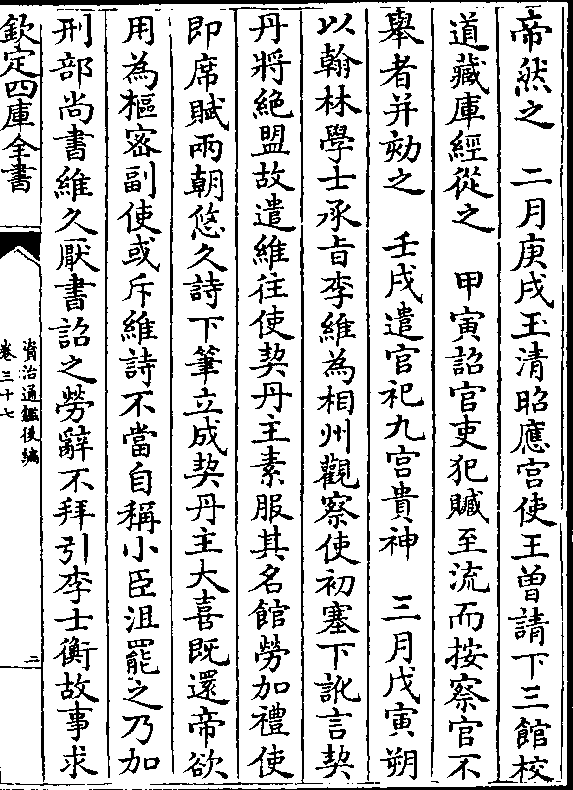 帝然之　二月庚戌玉清昭應宫使王曾請下三館校
道藏庫經從之　甲寅詔官吏犯贓至流而按察官不
舉者并劾之　壬戌遣官祀九宫貴神　三月戊寅朔
以翰林學士承㫖李維為相州觀察使初塞下訛言契
丹將絶盟故遣維往使契丹主素服其名館勞加禮使
即席賦兩朝悠久詩下筆立成契丹主大喜既還帝欲
用為樞密副使或斥維詩不當自稱小臣沮罷之乃加
刑部尚書維久厭書詔之勞辭不拜引李士衡故事求
欽定四庫全書
資治通鑑後編
卷三十七
二